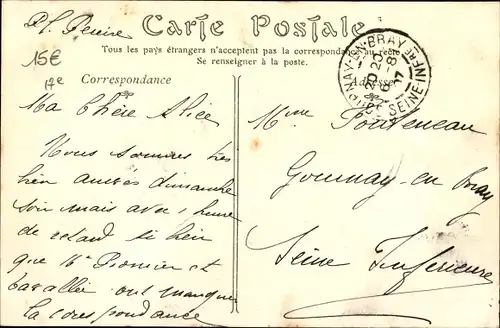 Pl. Perine
15€
12e
Carte Postale
Tous les pays étrangers n'acceptent pas la correspondance au recto
Se renseigner à la poste.
Correspondance
Adresse
GOURNAY-EN-BRAY
20 20
6 -8
07
SEINE INFRE
Ma Chère Alice
Nous sommes très
bien arrivés dimanche
soir mais avec 1 heure
de retard si bien
que Mr et
Cavallée ont manqué
la correspondance
Mme Ponteneau
Gournay-en Bray
Seine Inférieure